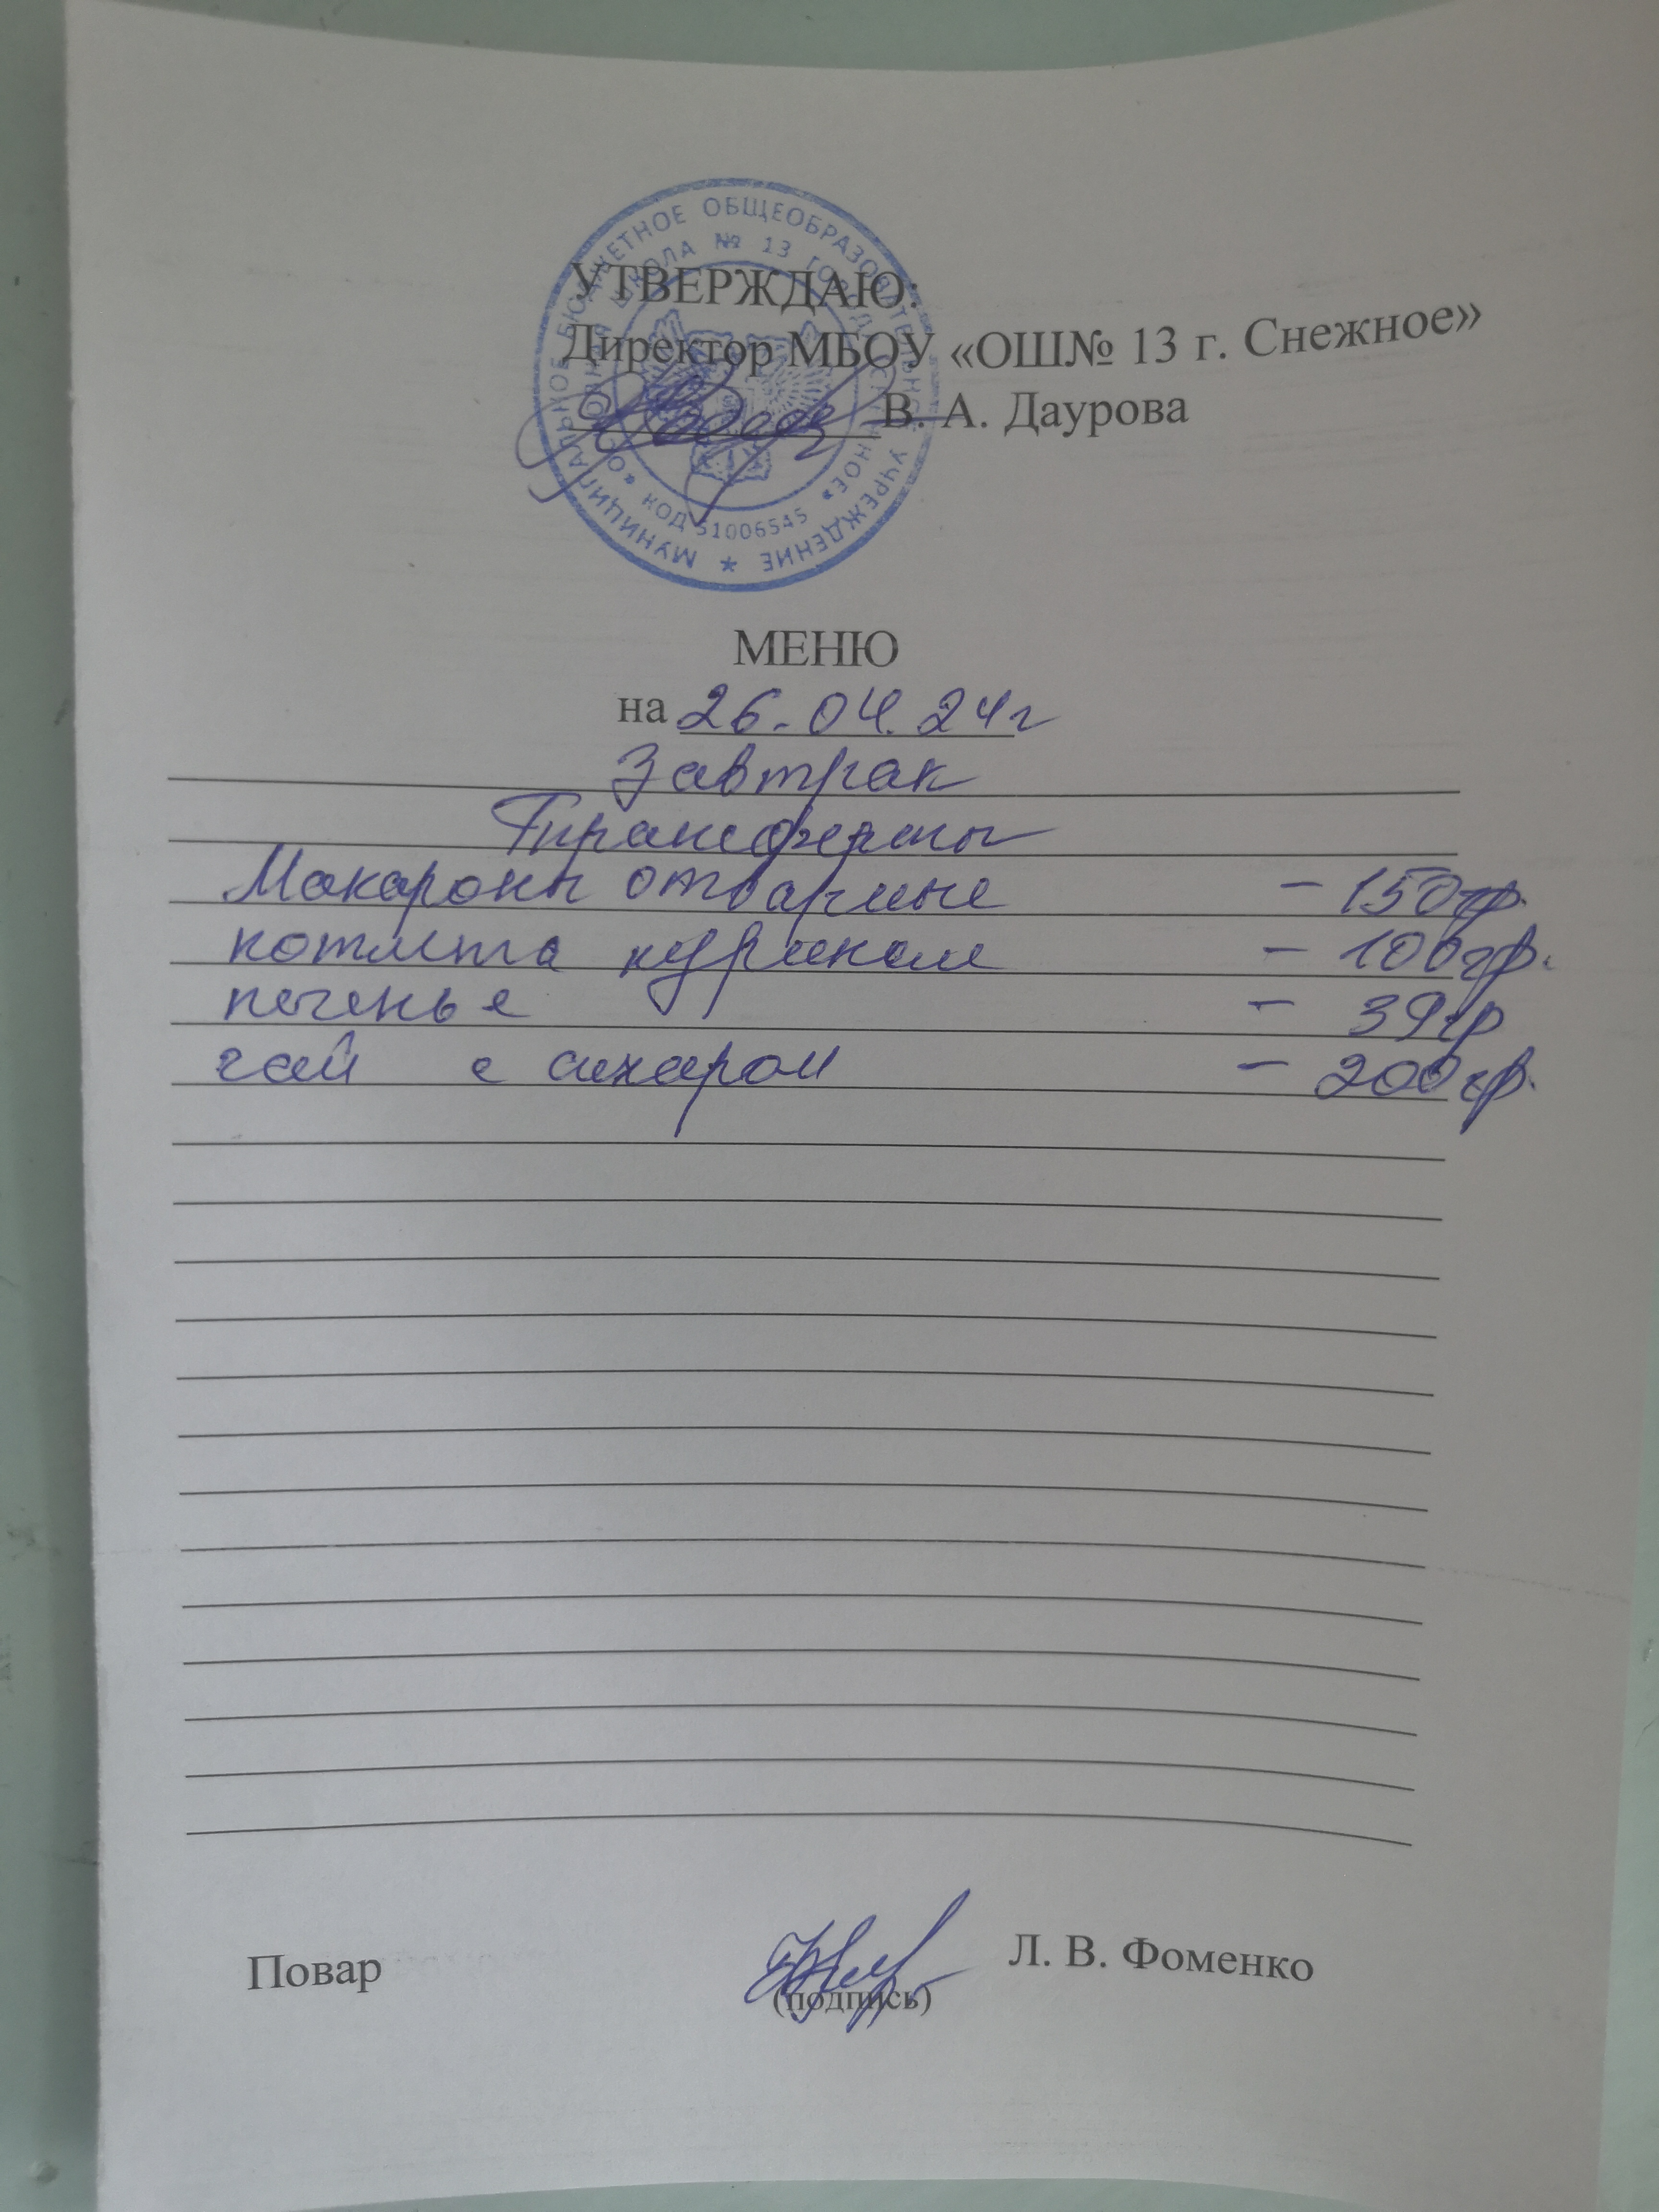 МУНИЦИПАЛЬНОЕ БЮДЖЕТНОЕ ОБЩЕОБРАЗОВАТЕЛЬНОЕ УЧРЕЖДЕНИЕ
ШКОЛА № 13 ГОРОД СНЕЖНОЕ»
КОД 51006545
УТВЕРЖДАЮ:
Директор МБОУ «ОШ№ 13 г. Снежное»
В. А. Даурова
МЕНЮ
на 26.04.24г
Завтрак
Макароны отварные – 150гр.
котлета куриная – 100гр.
печенье – 39гр
чай с сахаром – 200гр.
Повар Л. В. Фоменко
(подпись)